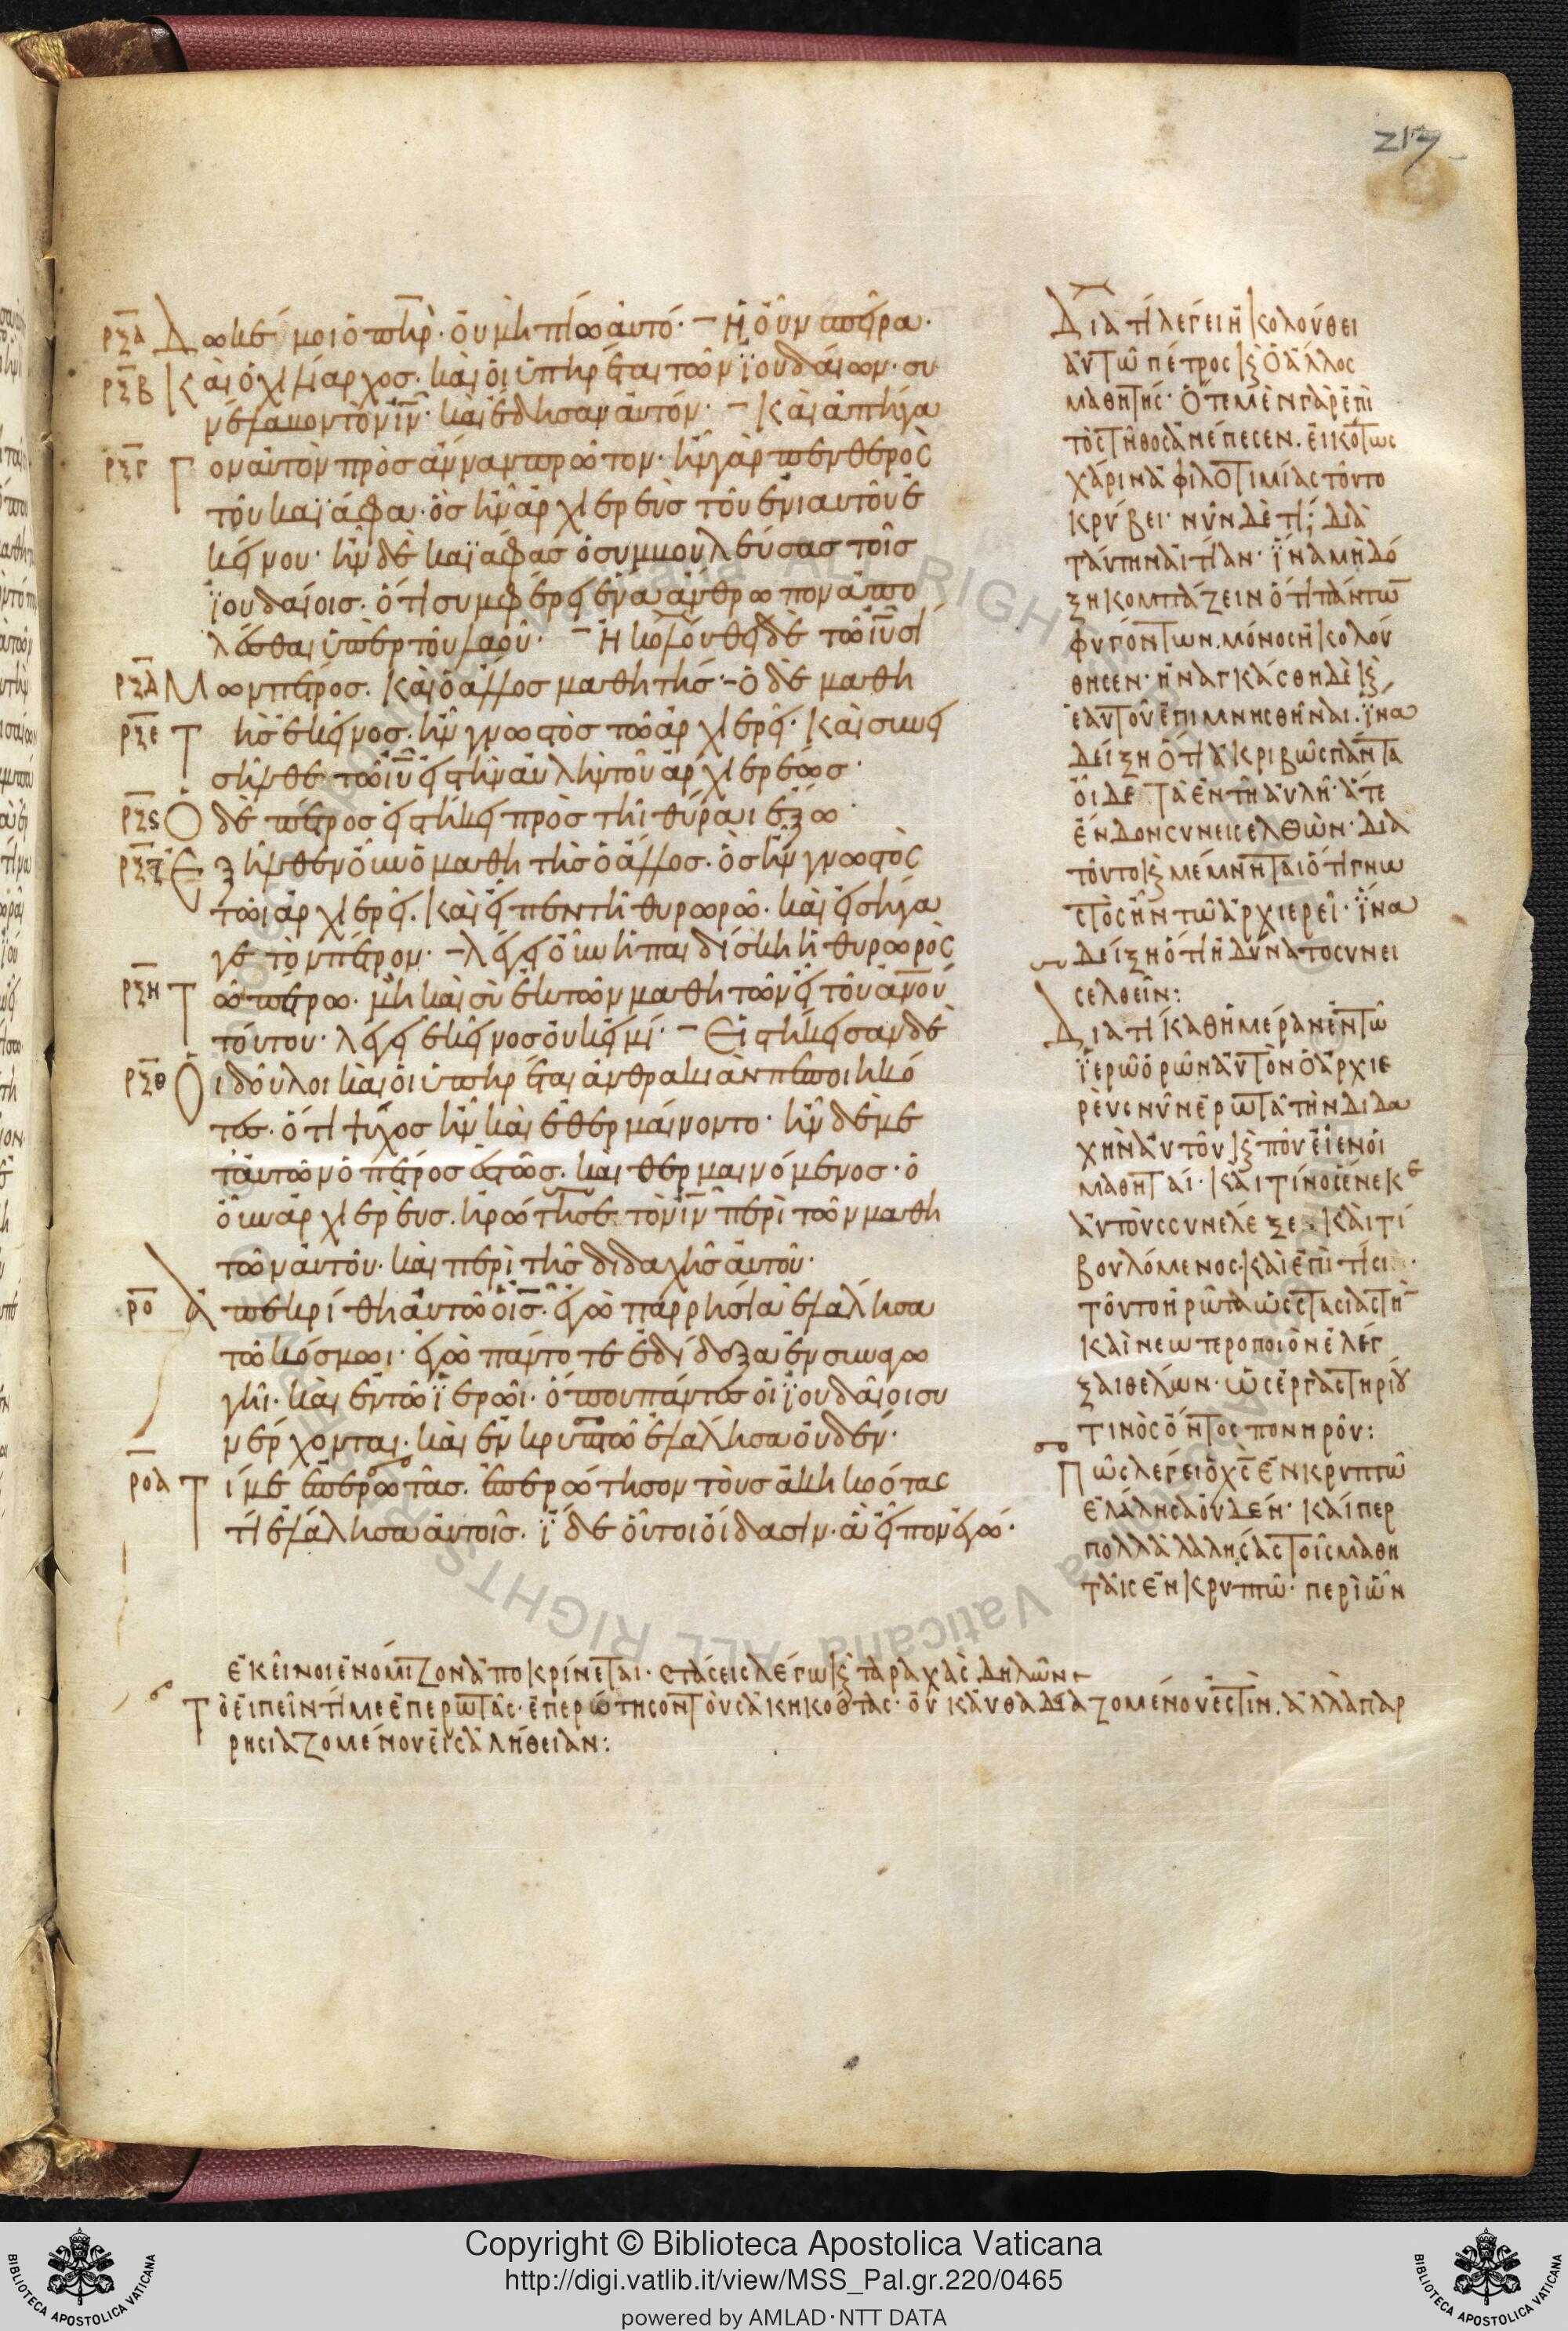 217
ρξα Δωκέ μοι ὁ πη̅ρ. οὐ μὴ πίω αὐτό. – Ἡ οὖν σπεῖρα.
ρξβ Καὶ ὁ χιλίαρχοσ. καὶ οἱ ὑπηρέται τῶν ϊουδαίων. συ
νέλαβον τὸν ι̅ν̅. καὶ ἔδησαν αὐτόν. – Καὶ ἀπήγα
ρξγ Τον αὐτὸν πρὸσ ἄνναν πρῶτον. ἦν γὰρ πενθερὸσ
τοῦ καϊάφα. ὃσ ἦν ἀρχιερεὺσ τοῦ ἐνιαυτοῦ ἐ
κείνου. ἦν δὲ καϊάφασ ὁ συμβουλεύσασ τοῖσ
ϊουδαίοισ. ὅτι συμφέρει ἕνα ἄνθρωπον ἀπο
λέσθαι ὑπὲρ τοῦ λαοῦ. – Ἠκολούθει δὲ τῶ ι̅υ̅ σί
ρξδ Μων πέτροσ. καὶ ὁ ἄλλοσ μαθητήσ. – ὁ δὲ μαθη
ρξε Τὴσ ἐκεῖνοσ. ἦν γνωστὸσ τῶ ἀρχιερεῖ. Καὶ συνει
σῆλθε τῶ ι̅υ̅ εἰσ τὴν αὐλὴν τοῦ ἀρχιερέωσ.
ρξς Ὁ δὲ πέτροσ εἱστήκει πρὸσ τῆι θύραι ἔξω.
ρξζ Ἐξῆλθεν οὖν ὁ μαθητὴσ ὁ ἄλλοσ. ὃσ ἦν γνωστὸσ
τῶι ἀρχιερεῖ. Καὶ εἶπεν τῆ θυρωρῶ. καὶ εἰσήγα
γε τὸν πέτρον. – λέγει οὖν ἡ παιδίσκη ἡ θυρωρὸσ
ρξη Τῶ πέτρω. μὴ καὶ σὺ ἐκ τῶν μαθητῶν εἶ τοῦ α̅ν̅ο̅υ̅
τούτου. λέγει ἐκεῖνοσ οὐκ εἰμί. – Εἱστήκεισαν δὲ
ρξθ Οἱ δοῦλοι καὶ οἱ ὑπηρέται ἀνθρακιὰν πεποιηκό
τεσ. ὅτι ψῦχοσ ἦν καὶ ἐθερμαίνοντο. ἦν δὲ με
τ᾽αὐτῶν ὁ πέτροσ ἑστὼσ. καὶ θερμαινόμενοσ. ὁ
οὖν ἀρχιερεὺσ. ἠρώτησε τὸν ι̅ν̅ περὶ τῶν μαθη
τῶν αὐτοῦ. καὶ περὶ τῆσ διδαχῆσ αὐτοῦ.
ρο Ἀπεκρίθη αὐτῶ ὁ ι̅σ̅. ἐγὼ παρρησία ἐλάλησα
τῶ κόσμωι. ἐγὼ πάντοτε ἐδίδαξα ἐν συναγω
γῆι. καὶ ἐν τῶ ϊερῶι. ὅπου πάντεσ οἱ ϊουδαῖοι συ
νέρχονται. καὶ ἐν κρυπτῶ ἐλάλησα οὐδέν.
ροα Τί με ἐπερωτᾶσ. ἐπερώτησον τοὺσ ἀκηκοότασ
τί ἐλάλησα αὐτοῖσ. ϊδε οὗτοι οἴδασιν. ἃ εἶπον ἐγώ.
Διατί λέγει ἠκολούθει
αὐτῶ πέτρος κ(αὶ) ὁ ἄλλος
μαθητής. ὅτε μὲν γὰρ ἐπὶ
τὸ στῆθος ἀνέπεσεν. εἰκότως
χάριν ἀφιλοτιμίας τοῦτο
κρύβει. νῦν δὲ τί; διὰ
ταύτην αἰτίαν. ἵνα μὴ δό
ξη κομπάζειν ὅτι πάντω(ν)
φυγόντων. μόνος ἠκολού
θησεν. ἠναγκάσθη δὲ κ(αὶ)
ἑαυτοῦ ἐπιμνησθῆναι. ἵνα
δείξη ὅτι ἀκριβῶς πάντα
οἶδε τὰ ἐν τῆ αὐλῆ. ἅτε
ἔνδον συνεισελθὼν. διὰ
τοῦτο κ(αὶ) μέμνηται ὅτι γνω
στὸς ἦν τῶ ἀρχιερεῖ. ἵνα
δείξη ὅτι ἠδύνατο συνει
σελθεῖν:
Διατί καθημέραν ἐν τῶ
ϊερῶ ὁρῶν αὐτὸν ὁ ἀρχιε
ρεὺς νῦν ἐρωτᾶ τὴν διδα
χὴν αὐτοῦ κ(αὶ) ποῦ εἶεν οἱ
μαθηταί. καὶ τίνος ἕνεκε
αὐτοὺς συνέλεξε. καὶ τί
βουλόμενος. καὶ ἐπὶ τίσι.
τοῦτο ἠρώτα ὡς στασιαστὴ(ν)
καὶ νεωτεροποιὸν ἐλέγ
ξαι θέλων. ὡς ἐργαστηρίου
τινὸς ὄντος πονηροῦ:
Πῶς λέγει ὁ χ̅ς̅ ἐν κρυπτῶ
ἐλάλησα οὐδέν. καίπερ
πολλὰ λαλήσας τοῖς μαθη
ταῖς ἐν κρυπτῶ. περὶ ὧν
ἐκεῖνοι ἐνόμιζον ἀποκρίνεται. στάσεις λέγω κ(αὶ) ταραχὰς δηλῶν
Τὸ εἰπεῖν τί με ἐπερωτᾶς. ἐπερώτησον τοὺς ἀκηκοότας. οὐκ αὐθαδιαζομένου ἐστὶν. ἀλλὰ παρ
ρησιαζομένου εἰς ἀλήθειαν:
Copyright © Biblioteca Apostolica Vaticana
http://digi.vatlib.it/view/MSS_Pal.gr.220/0465
powered by AMLAD·NTT DATA